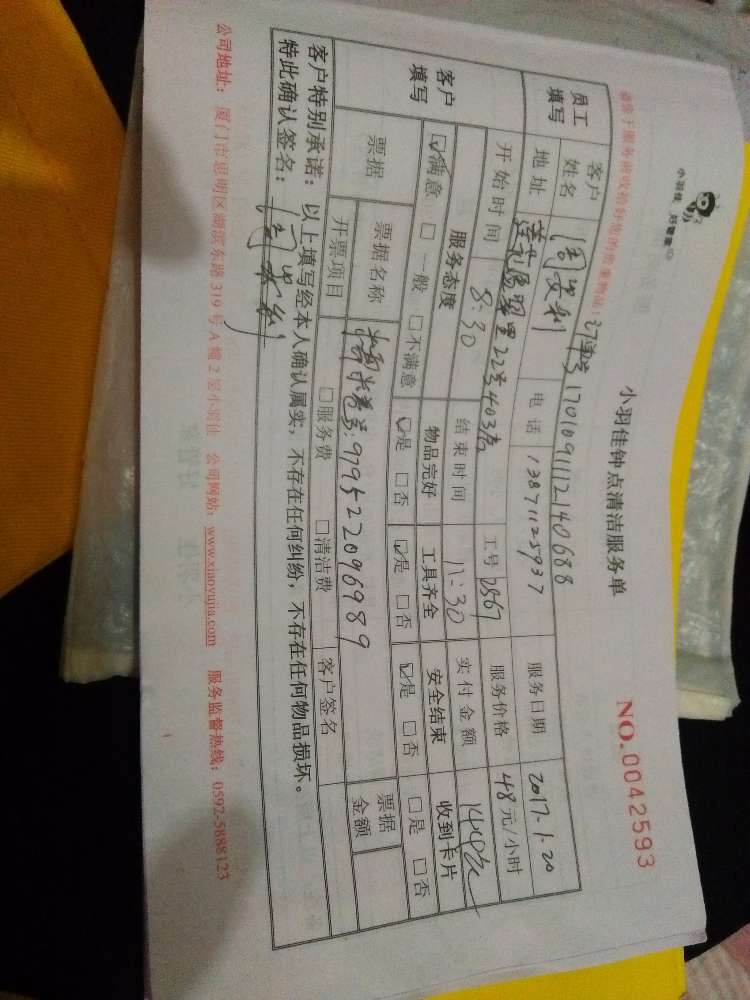 小羽佳钟点清洁服务单
NO.0042593
请您于服务前收拾好您的贵重物品!
订单号170109111214068 8
员工填写 客户姓名 周安利 电话 13871125937 服务日期 2017.1.20
地址 莲花 22号403 工号 2867 服务价格 48元/小时
开始时间 8:30 结束时间 11:30 实付金额 144元
客户填写 服务态度 物品完好 工具齐全 安全结束 收到卡片
☑满意 □一般 □不满意 ☑是 □否 ☑是 □否 ☑是 □否 □是 □否
票据 票据名称 券号:979522096989 票据金额
开票项目 □服务费 □清洁费 客户签名
客户特别承诺:以上填写经本人确认属实,不存在任何纠纷,不存在任何物品损坏。
特此确认签名:周安利
公司地址:厦门市思明区湖滨东路319号A幢2层小羽佳 公司网站:www.xiaoyujia.com 服务监督热线:0592-5888123